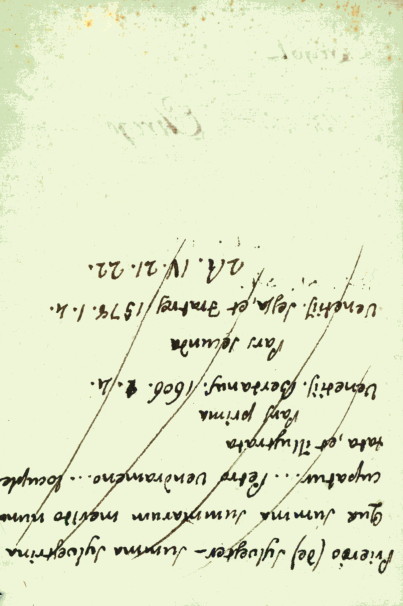 Prierio (de) Sylvester - Summa Sylvestrina
Quæ Summa Summarum merito nun
cupatur ... Petro Vendrameno ... locuple
tata, et illustrata
Pars prima
Venetiis. Bertanus. 1606. 4.
Pars secunda
Venetiis. Sessa, et Fratres 1578. 1. 4.
IV. 21. 22.